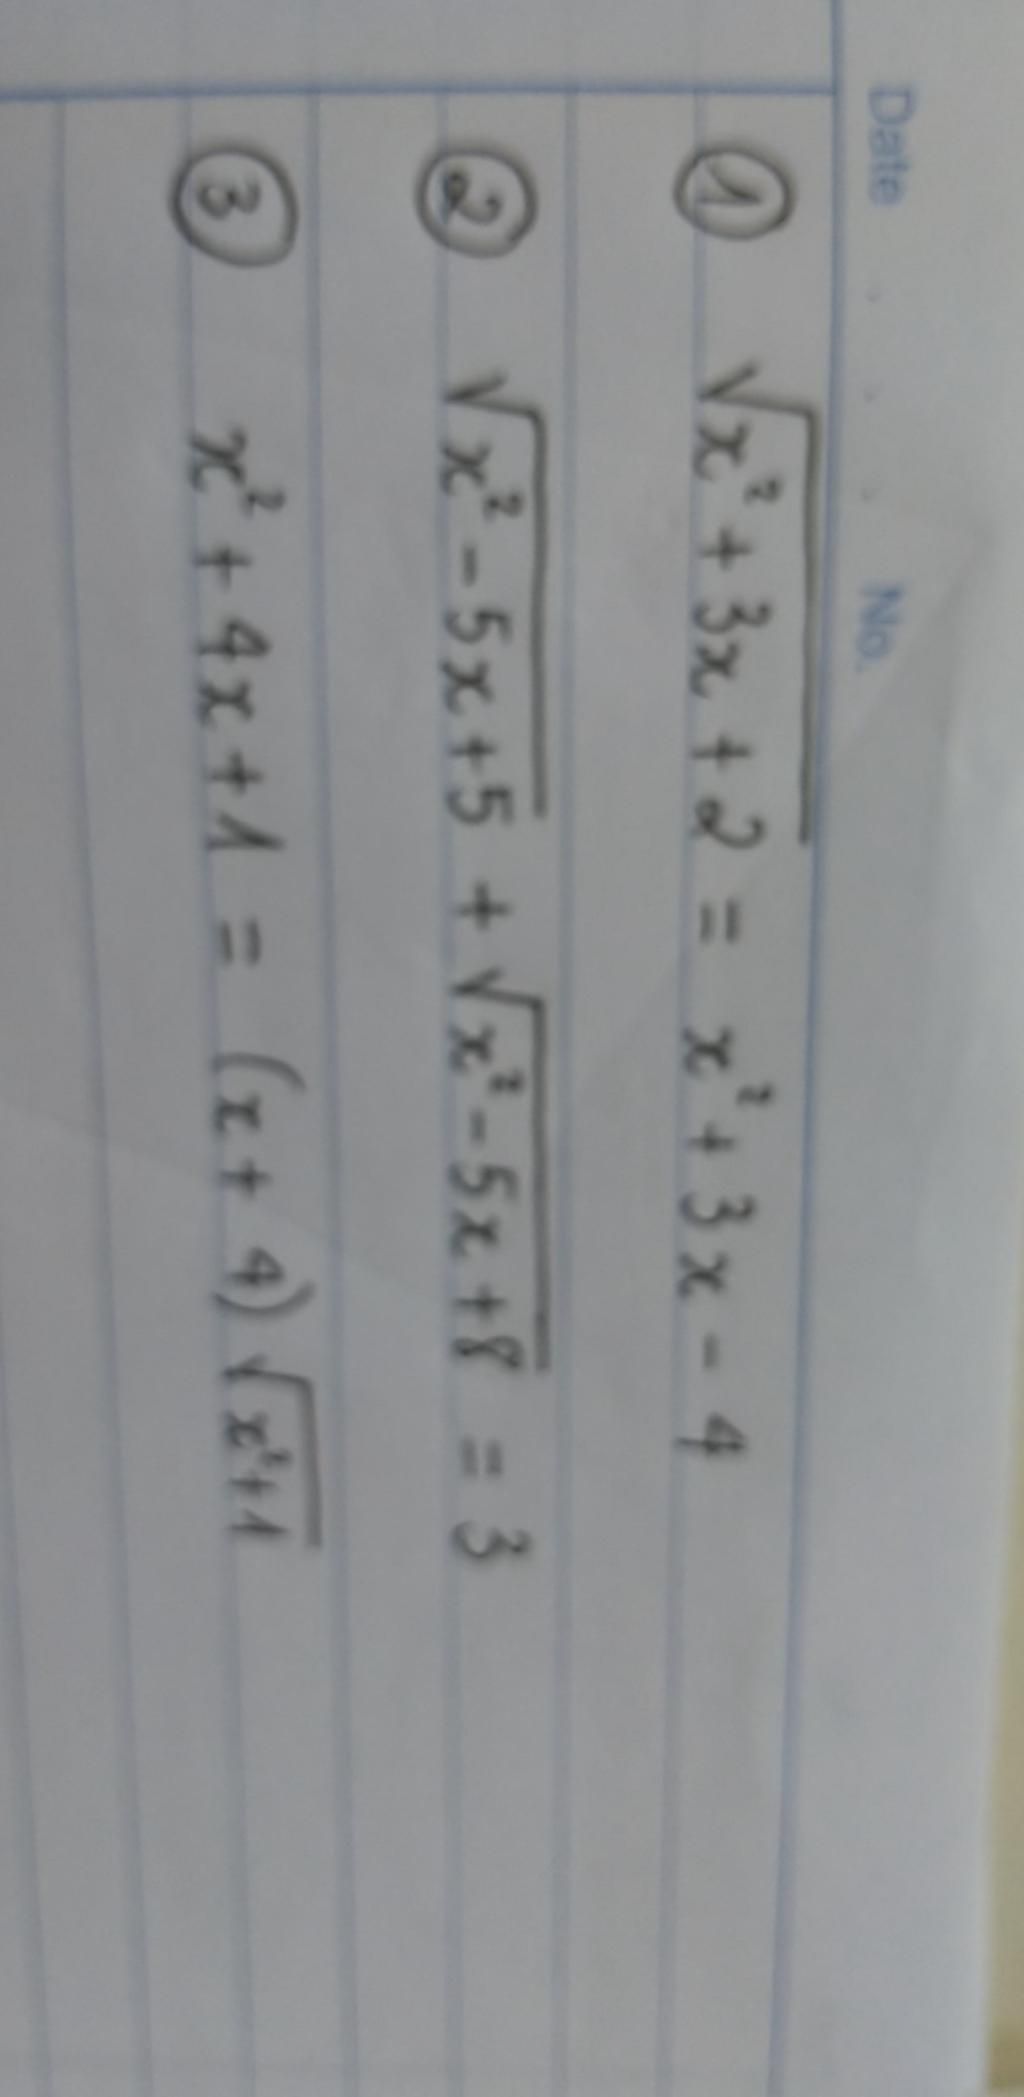 Date . . . No.
① √(x²+3x+2) = x²+3x-4
② √(x²-5x+5) + √(x²-5x+8) = 3
③ x²+4x+1 = (x+4)√(x²+1)